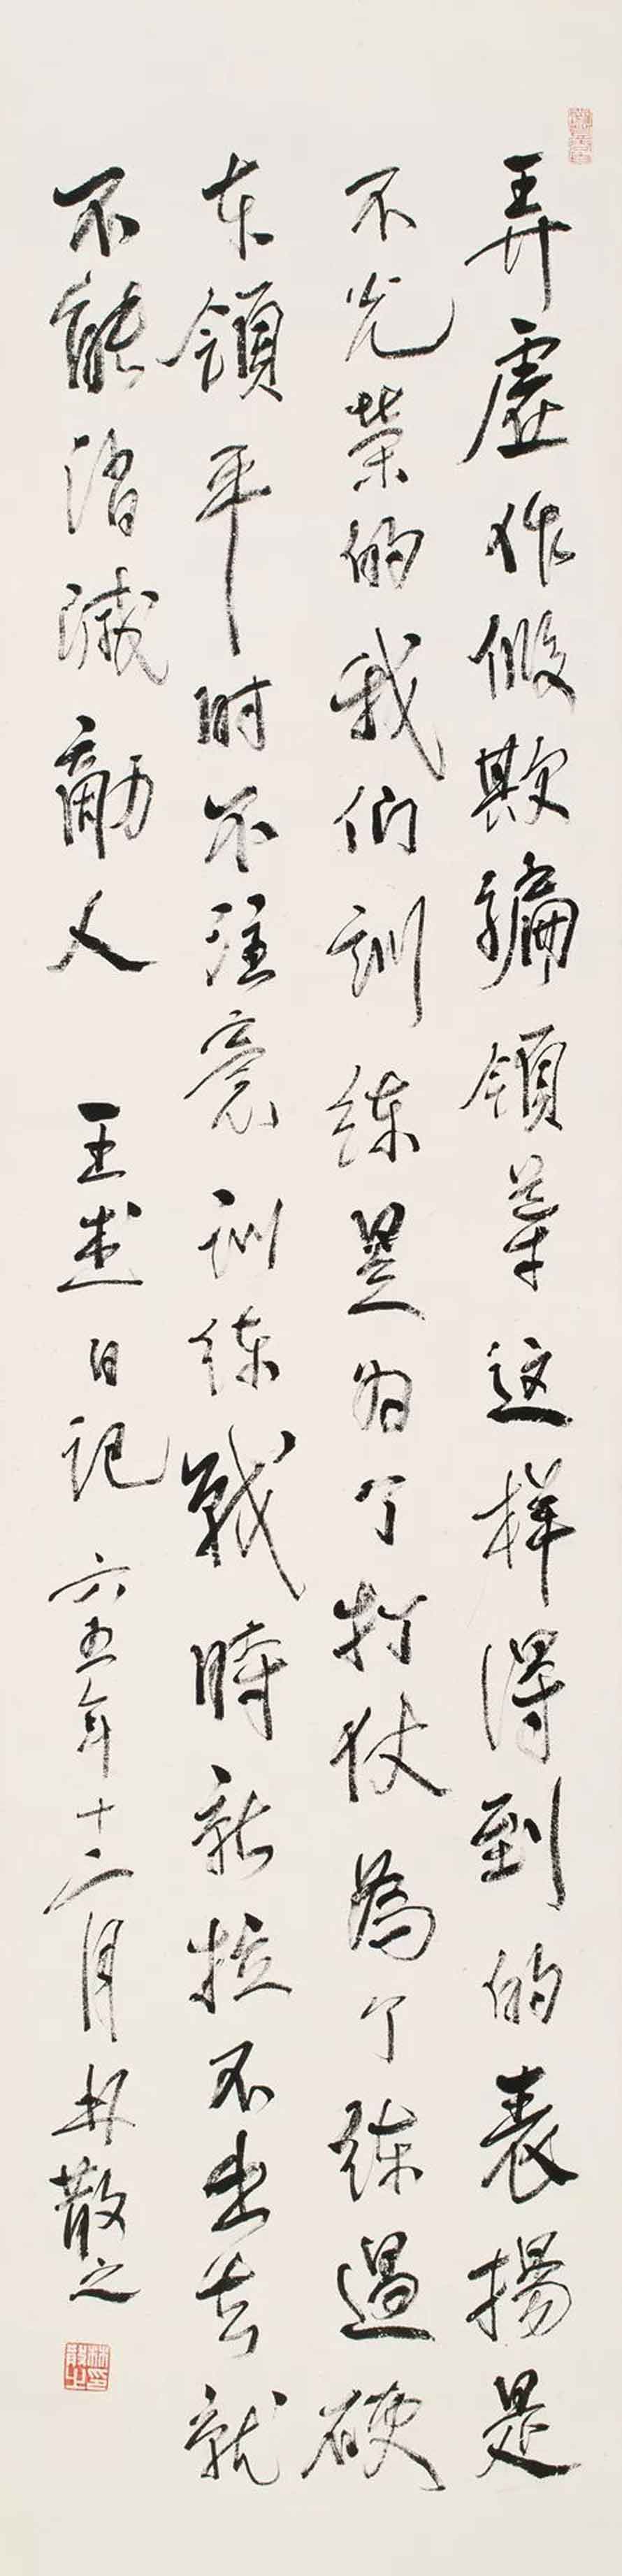 弄虚作假欺骗領导这样得到的表揚是
不光荣的我们训练是为了打仗為了练過硬
本領平时不注意训练战時就拉不出去就
不能消滅敵人 王杰日记 六五年十二月林散之